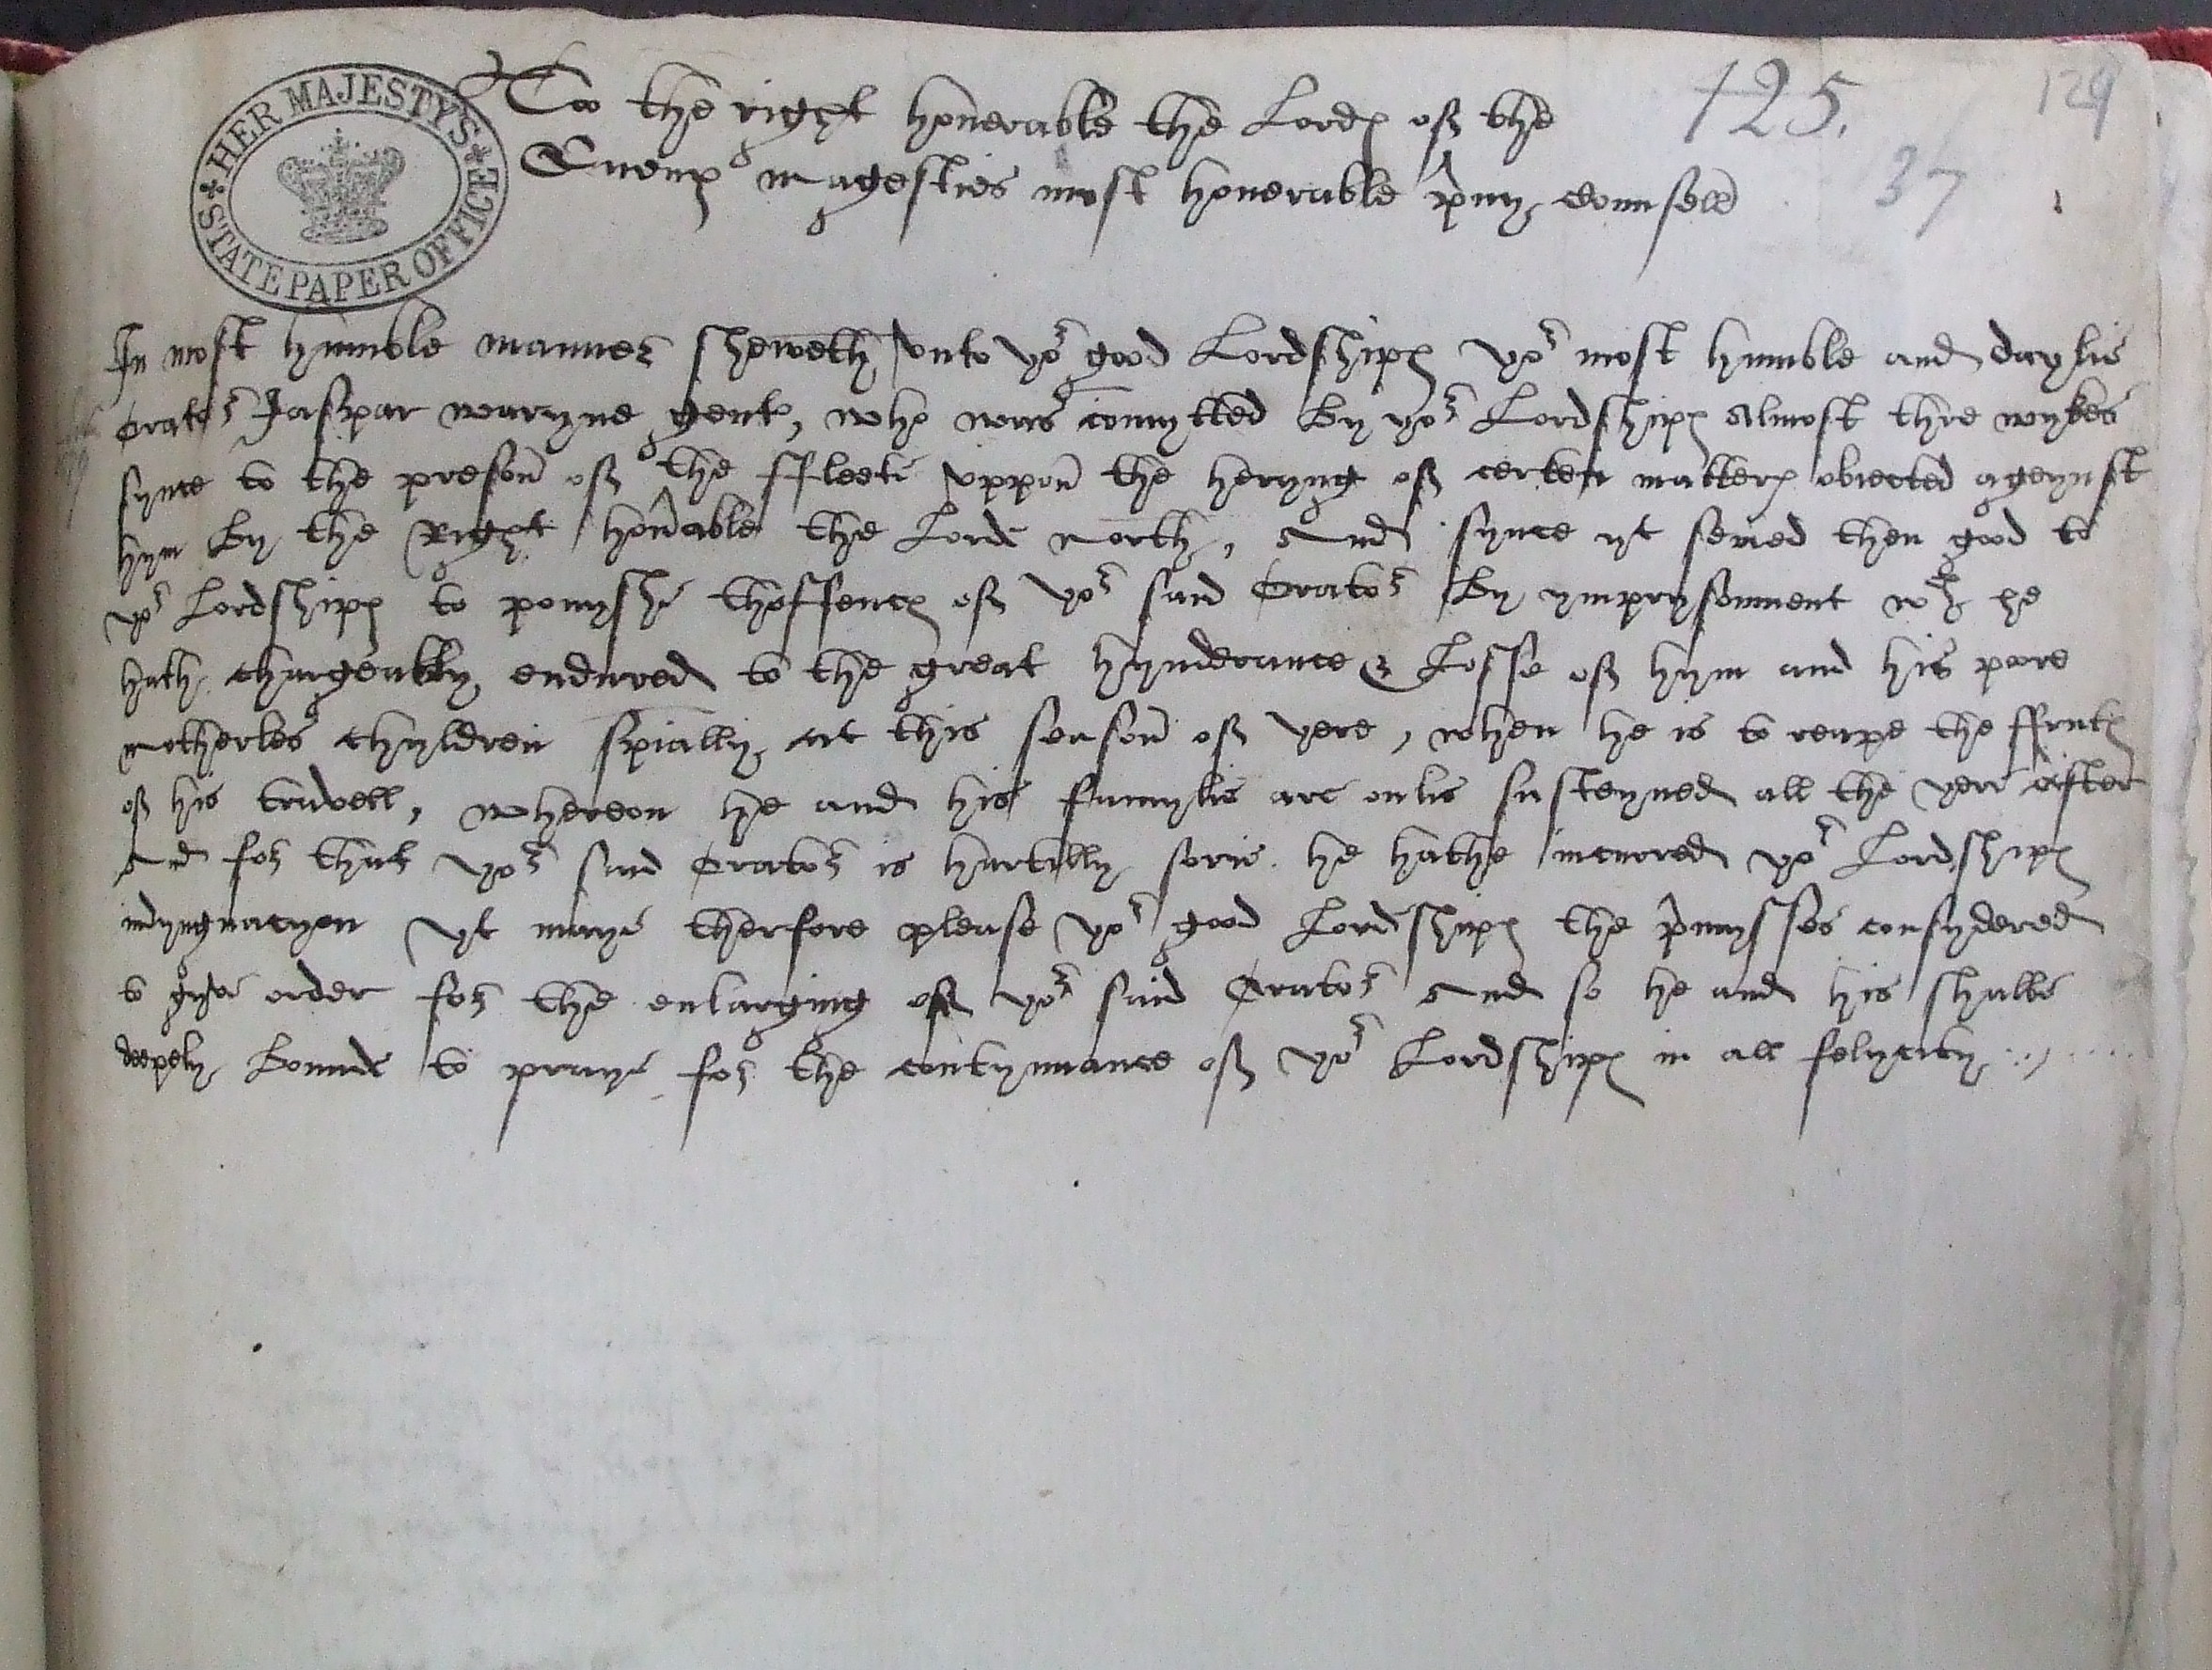 HER MAJESTY'S STATE PAPER OFFICE
To the right honerable the Lordes of the
125.
129
Quenes magesties most honerable privy counsell
37
In most humble manner sheweth unto yor good Lordshipes yor most humble and daylie
Orator Jaspar warryne gent, who was comytted By yor Lordshipes Almost thre wykes
synce to the preson of the ffleete uppon the heryng of certen matters obiected ageynst
hym By the Right honable the Lord North, And synce yt semed then good to
yor Lordshipes to ponyshe thoffences of yor said Orator By ymprysonment wch he
hath chargeably endured to the great hynderance & Losse of hym and his pore
motherles chyldren spially at this season of yere, when he is to reape the ffrutes
of his travell, whereon he and his famylie are onlie susteyned all the yere after
And for that yor said Orator is hartilly sorie he hathe incurred yor Lordshipes
indyngnacyon yt maye therfore please yor good Lordshipes the pmysses consydered
to gyve order for the enlarging of yor said Orator And so he and his shalbe
deepely Bounde to praye for the contynuance of yor Lordshipes in all felycity